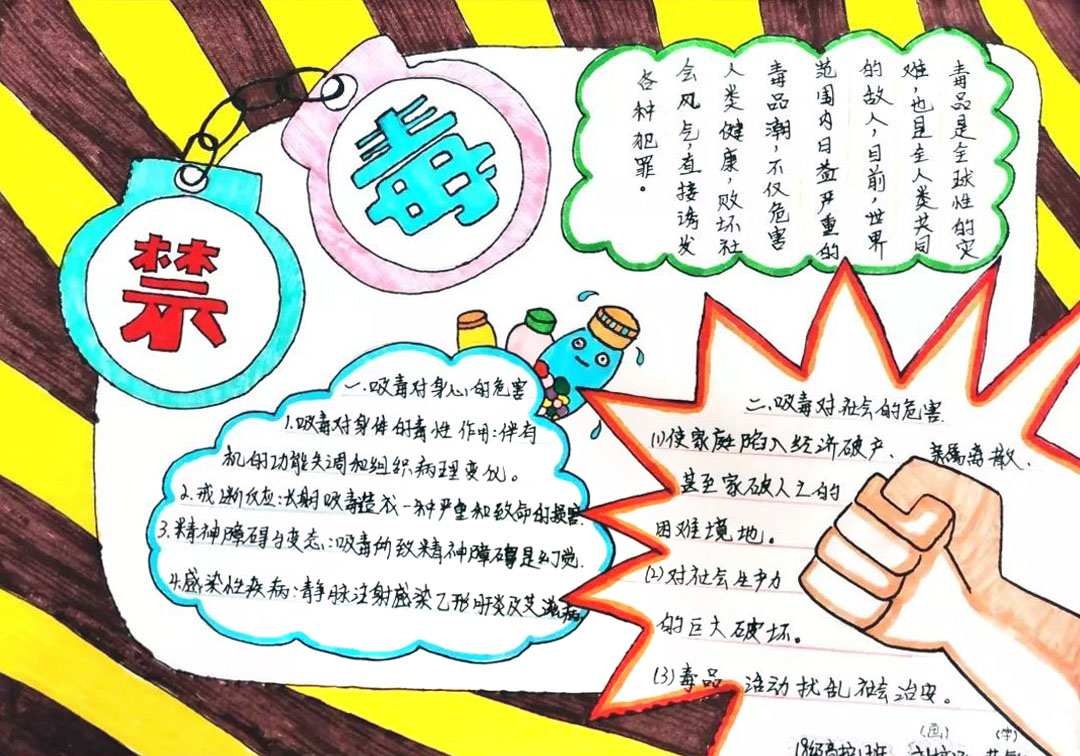 禁毒
毒品是全球性的灾
难,也是全人类共同
的敌人,目前,世界
范围内日益严重的
毒品潮,不仅危害
人类健康,败坏社
会风气,直接诱发
各种犯罪。
一.吸毒对身心的危害
1.吸毒对身体的毒性作用:伴有
机的功能失调和组织病理变化。
2.戒断反应:长期吸毒造成一种严重和致命的损害.
3.精神障碍与变态:吸毒的致精神障碍是幻觉.
4.感染性疾病:静脉注射感染乙形肝炎及艾滋病.
二.吸毒对社会的危害
(1)使家庭陷入经济破产、亲属离散、
甚至家破人亡的
困难境地。
(2)对社会生产力
的巨大破坏。
(3)毒品活动扰乱社会治安。
(画) (字)